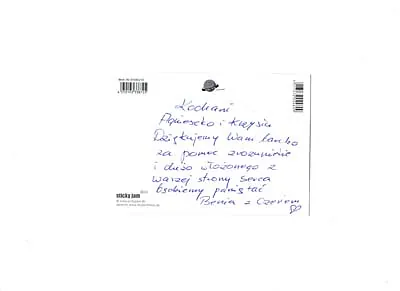 Kochani
Agnieszko i Krzysiu
Dziękujemy Wam bardzo
za pomoc zrozumienie
i dużo włożonego z
waszej strony serca
będziemy pamiętać
Benia z Czarkiem
sticky jam